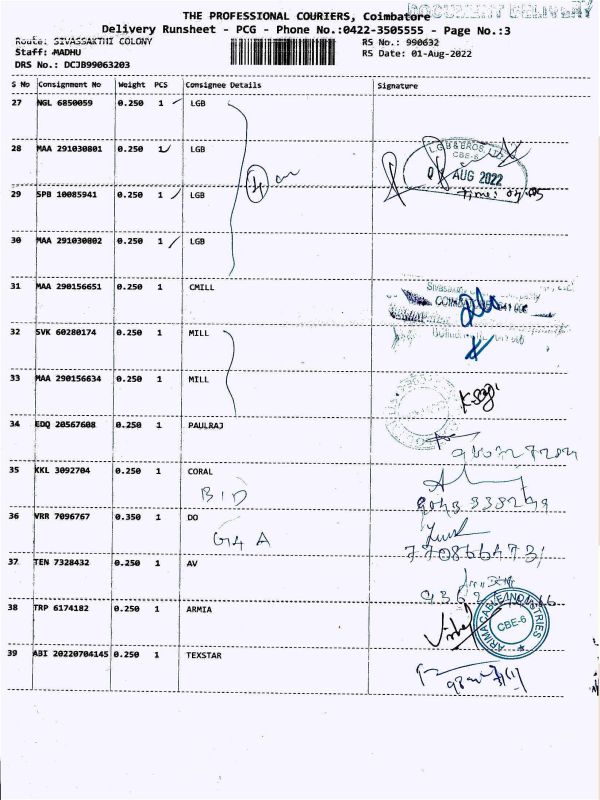 DOCUMENT DELIVERY
THE PROFESSIONAL COURIERS, Coimbatore
Delivery Runsheet - PCG - Phone No.:0422-3505555 - Page No.:3
Route: SIVASSAKTHI COLONY RS No.: 990632
Staff: MADHU RS Date: 01-Aug-2022
DRS No.: DCJB99063203
S No Consignment No Weight PCS Consignee Details Signature
27 NGL 6850059 0.250 1 LGB
28 MAA 291030801 0.250 1 LGB
L G B & BROS. LTD
CBE-6
AUG 2022
29 SPB 10085941 0.250 1 LGB
Time:
30 MAA 291030802 0.250 1 LGB
31 MAA 290156651 0.250 1 CMILL
32 SVK 60280174 0.250 1 MILL
33 MAA 290156634 0.250 1 MILL
34 EDQ 20567608 0.250 1 PAULRAJ
35 KKL 3092704 0.250 1 CORAL
BID
36 VRR 7096767 0.350 1 DO
G4 A
37 TEN 7328432 0.250 1 AV
38 TRP 6174182 0.250 1 ARMIA
ARIMA CABLE INDUSTRIES
CBE-6
39 ABI 20220704145 0.250 1 TEXSTAR